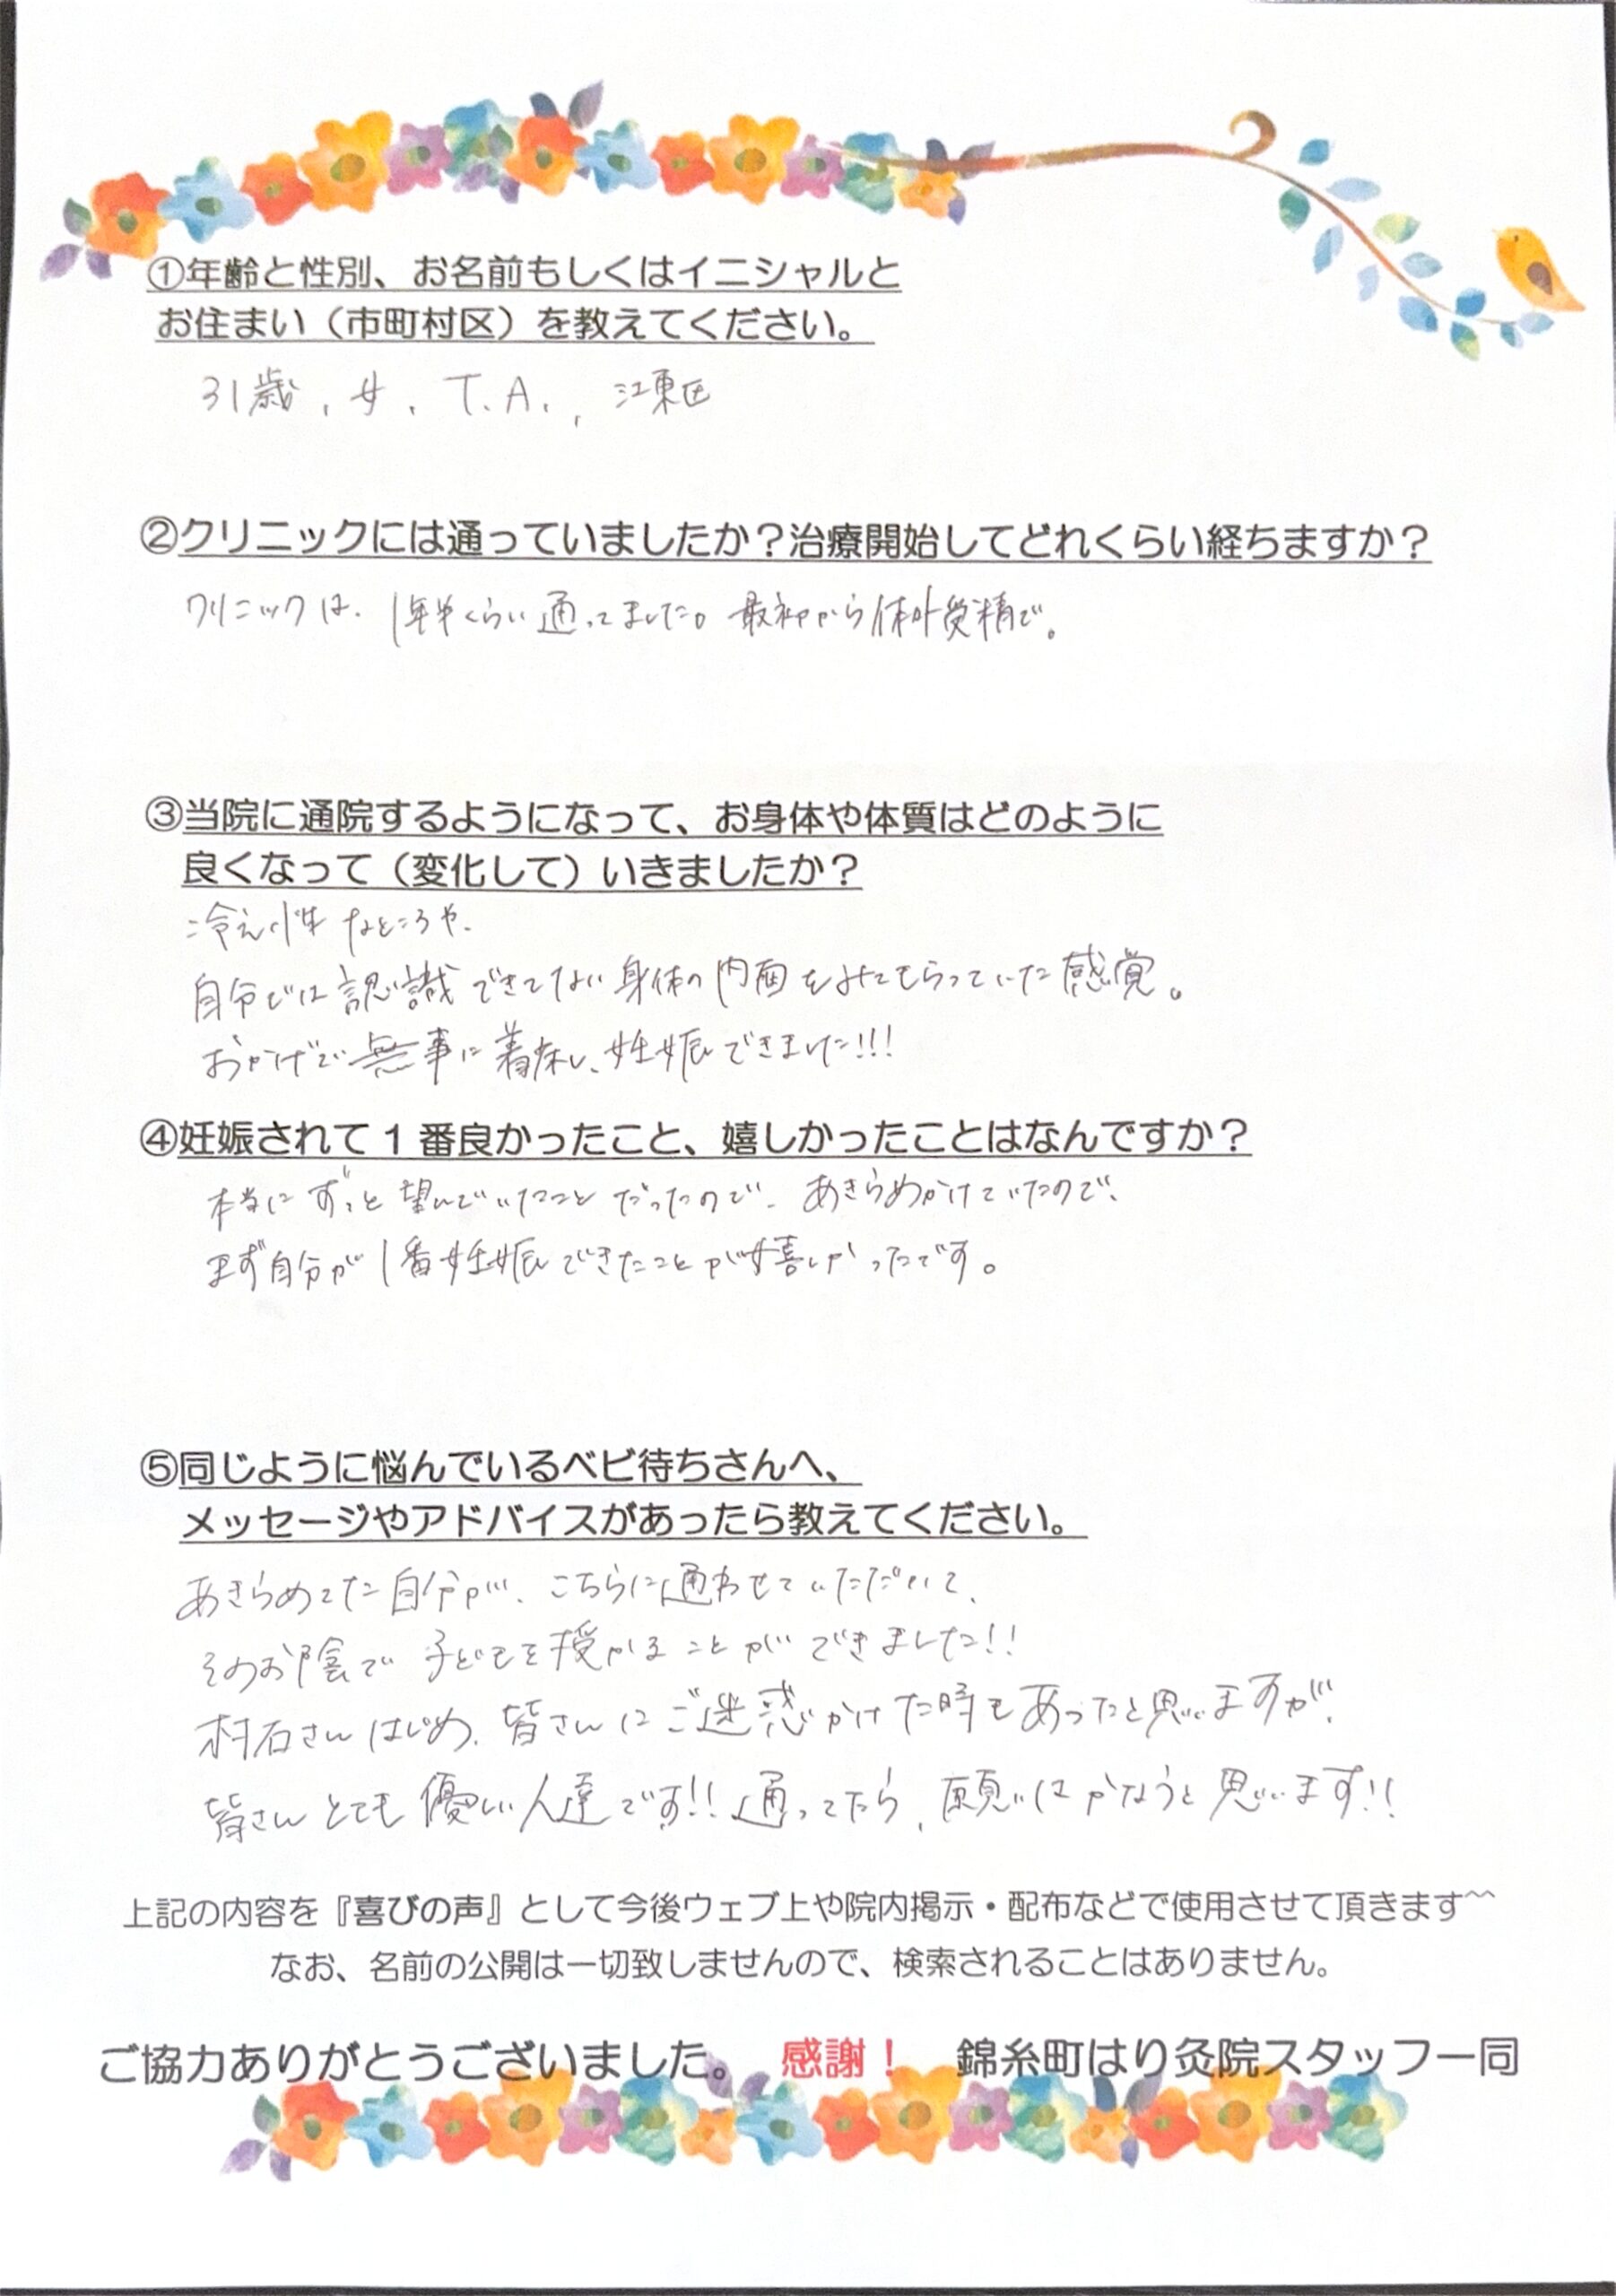 ①年齢と性別、お名前もしくはイニシャルと
お住まい（市町村区）を教えてください。
31歳、女、T.A.、江東区
②クリニックには通っていましたか？治療開始してどれくらい経ちますか？
クリニックは、1年半くらい通ってました。最初から体外受精で。
③当院に通院するようになって、お身体や体質はどのように
良くなって（変化して）いきましたか？
冷え性なところや、
自分では認識できてない身体の内面をみてもらっていた感覚。
おかげで無事に着床し、妊娠できました!!!
④妊娠されて１番良かったこと、嬉しかったことはなんですか？
本当にずっと望んでいたことだったので、あきらめかけていたので、
まず自分が1番妊娠できたことが嬉しかったです。
⑤同じように悩んでいるベビ待ちさんへ、
メッセージやアドバイスがあったら教えてください。
あきらめてた自分が、こちらに通わせていただいて、
そのお陰で子どもを授かることができました!!
村石さんはじめ、皆さんにご迷惑かけた時もあったと思いますが、
皆さんとても優しい人達です!!通ってたら、願いはかなうと思います!!
上記の内容を『喜びの声』として今後ウェブ上や院内掲示・配布などで使用させて頂きます^^
なお、名前の公開は一切致しませんので、検索されることはありません。
ご協力ありがとうございました。 感謝！ 錦糸町はり灸院スタッフ一同